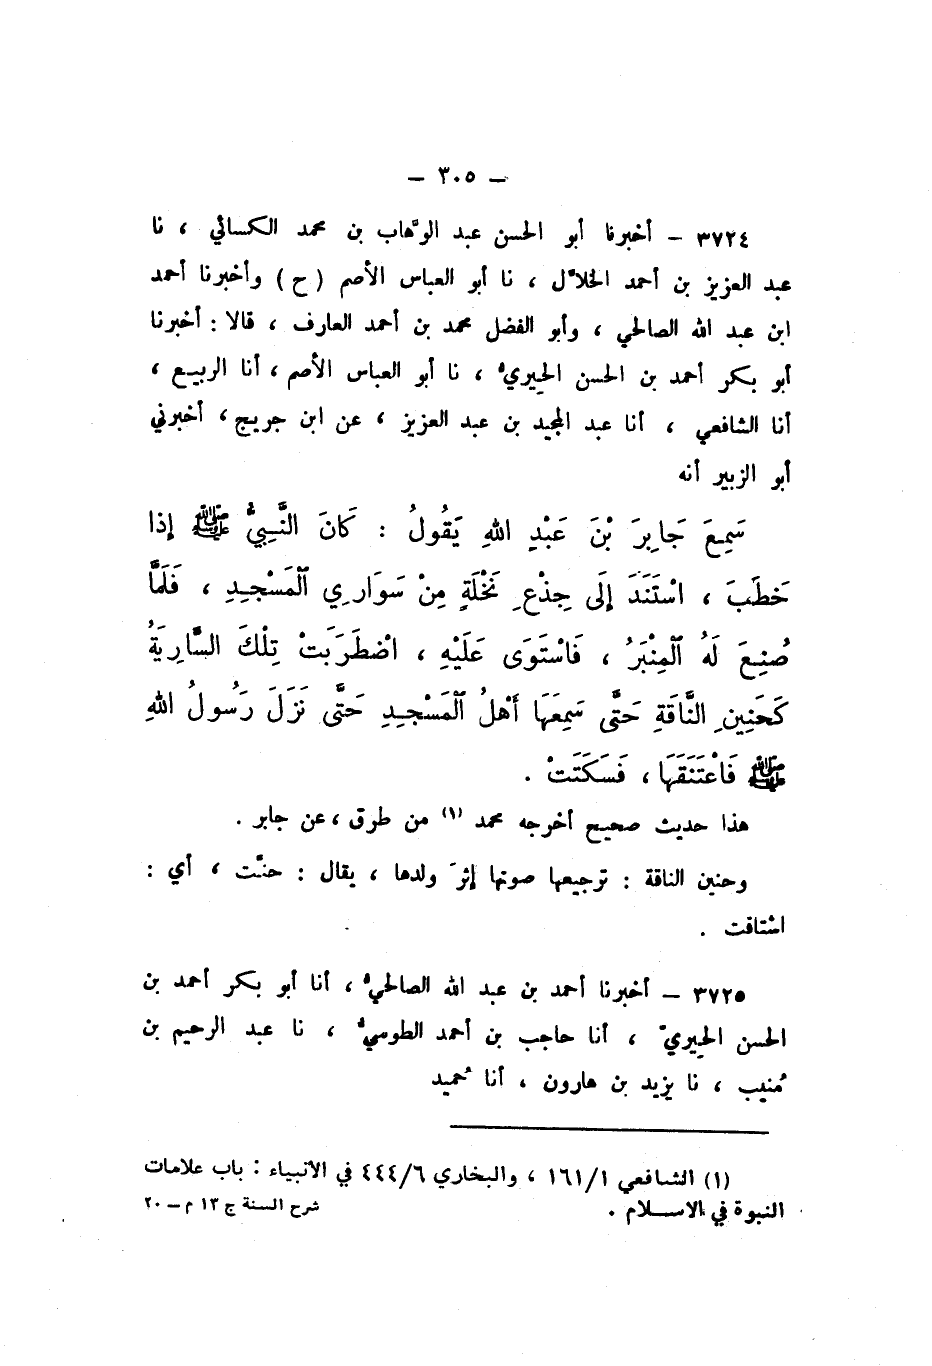 — ٣٠٥ —
٣٧٢٤ — أخبرنا أبو الحسن عبد الوهَّاب بن محمد الكسائي ، نا
عبد العزيز بن أحمد الخلاَّل ، نا أبو العباس الأصم ( ح ) وأخبرنا أحمد
ابن عبد الله الصالحي ، وأبو الفضل محمد بن أحمد العارف ، قالا : أخبرنا
أبو بكر أحمد بن الحسن الحِيريُّ ، نا أبو العباس الأصم ، أنا الربيع ،
أنا الشافعي ، أنا عبد المجيد بن عبد العزيز ، عن ابن جريج ، أخبرني
أبو الزبير أنه
سَمِعَ جَابِرَ بْنَ عَبْدِ اللهِ يَقُولُ : كَانَ النَّبِيُّ ﷺ إذا
خَطَبَ ، اسْتَنَدَ إلَى جِذْعِ نَخْلَةٍ مِنْ سَوَارِي ٱلْمَسْجِدِ ، فَلَمَّا
صُنِعَ لَهُ ٱلْمِنْبَرُ ، فَاسْتَوَى عَلَيْهِ ، اضْطَرَبَتْ تِلْكَ السَّارِيَةُ
كَحَنِينِ النَّاقَةِ حَتَّى سَمِعَهَا أَهْلُ ٱلْمَسْجِدِ حَتَّى نَزَلَ رَسُولُ اللهِ
ﷺ فَاعْتَنَقَهَا ، فَسَكَتَتْ .
هذا حديث صحيح أخرجه محمد (١) من طرق ، عن جابر .
وحنين الناقة : ترجيعها صوتها إثرَ ولدها ، يقال : حنَّت ، أي :
اشتاقت .
٣٧٢٥ — أخبرنا أحمد بن عبد الله الصالحيُّ ، أنا أبو بكر أحمد بن
الحسن الحِيريُّ ، أنا حاجب بن أحمد الطوسيُّ ، نا عبد الرحيم بن
مُنيب ، نا يزيد بن هارون ، أنا حُميد
(١) الشافعي ١/١٦١ ، والبخاري ٤٤٤/٦ في الأنبياء : باب علامات
النبوة في الاسلام .
شرح السنة ج ١٣ م — ٢٠